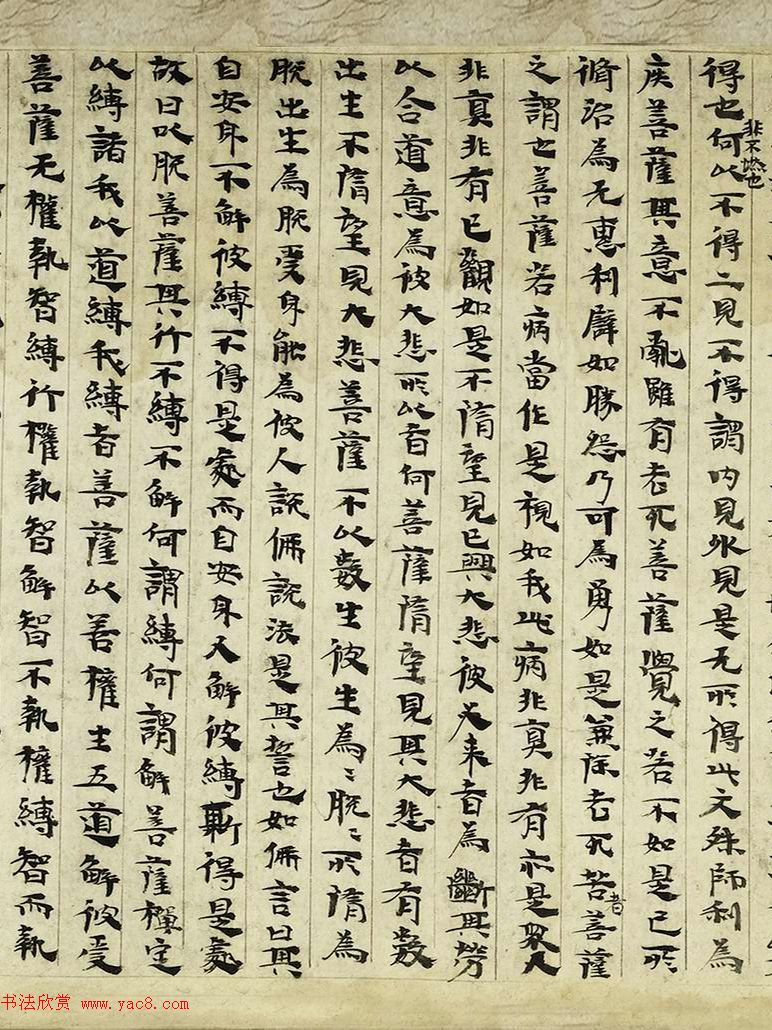 得也何以不得二見不得謂內見外見是无所得此文殊師利為
非不燃也
疾菩薩其意不亂雖有老死菩薩覺之若不如是己所
脩治為无惠利譬如勝怨乃可為勇如是兼除老死苦者菩薩
之謂也菩薩若病當作是視如我此病非真非有亦是眾人
非真非有已觀如是不隋望見已興大悲彼夫来者為斷其勞
以合道意為彼大悲所以者何菩薩隋望見其大悲者有數
出生不隋望見大悲菩薩不以數生彼生為〻脫〻所隋為
脫出生為脫受身能為彼人說佛說法是其誓也如佛言曰其
自安身不解彼縛不得是處而自安身又解彼縛斯得是處
故曰以脫菩薩其行不縛不解何謂縛何謂解菩薩禪定
以縛諸我以道縛我縛者菩薩以善權生五道解彼受
菩薩无權執智縛行權執智解智不執權縛智而執
书法欣赏 www.yac8.com